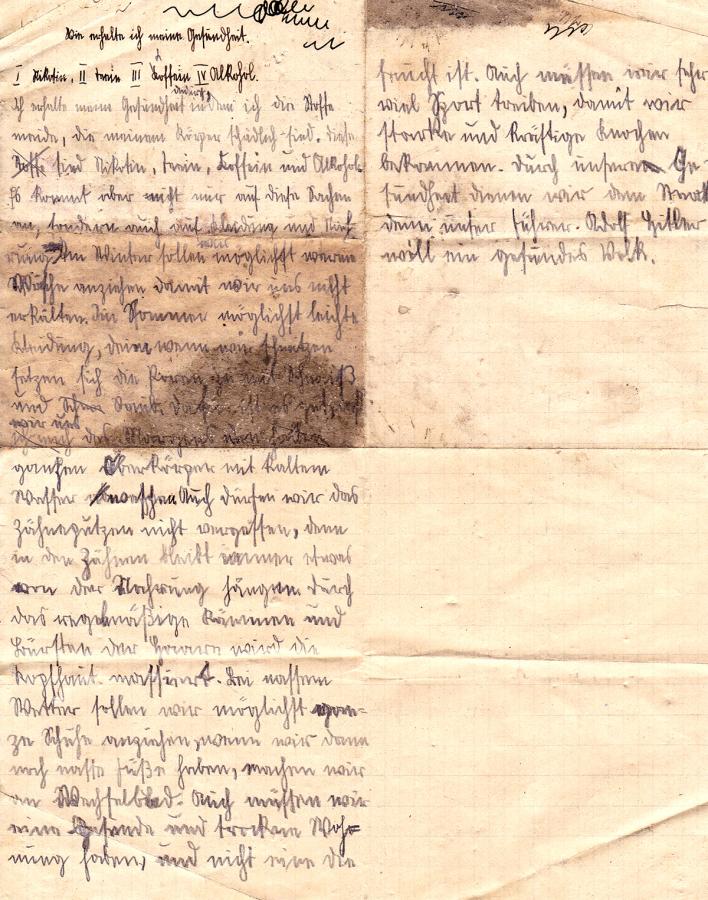 Wie erhalte ich meine Gesundheit.
I Nikotin, II Tein III Koffein IV Alkohol.
dadurch,
Ich erhalte meine Gesundheit indem ich die Stoffe
meide, die meinem Körper schädlich sind. diese
Stoffe sind Nikotin, Tein, Koffein und Alkohol.
Es kommt aber nicht nur auf diese Sachen
an, sondern auch auf Kleidung und Nah-
wir
rung. Im Winter sollen möglichst warme
Wäsche anziehen damit wir uns nicht
erkälten. Im Sommer möglichst leichte
Kleidung, denn wenn wir schwitzen
setzen sich die Poren zu mit Schweiß
und Staub. Daher ist es
wir uns
des Morgens den
ganzen Oberkörper mit kaltem
Wasser waschen. Auch dürfen wir das
Zähneputzen nicht vergessen, denn
in den Zähnen bleibt immer etwas
von der Nahrung hängen. Durch
das regelmäßige Kämmen und
Bürsten der Haare wird die
Kopfhaut massiert. Bei nassem
Wetter sollen wir möglichst gan-
ze Schuhe anziehen, wenn wir dann
noch nasse Füße haben, machen wir
ein Wechselbad. Auch müssen wir
eine gesunde und trockene Woh-
nung haben, und nicht eine die
feucht ist. Auch müssen wir sehr
viel Sport treiben, damit wir
starke und kräftige Knochen
bekommen. Durch unsere Ge-
sundheit dienen wir dem Staat
denn unser Führer Adolf Hitler
will ein gesundes Volk.